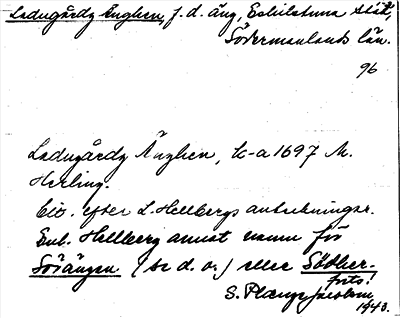 Ladugårdz Änghen, f. d. äng, Eskilstuna stad,
Södermanlands län.
96
Ladugårdz Änghen, k-a 1697 M.
Herling.
Cit. efter L. Hellbergs anteckningar.
Enl. Hellberg annat namn för
Sörängen (se d. o.) eller Södher-
forts.
S. Plange Jacobson
1943.